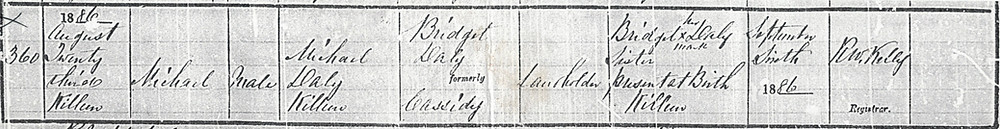 360
1886
August
Twenty
third
Killeen
Michael
Male
Michael
Daly
Killeen
Bridget
Daly
formerly
Cassidy
Landholder
Bridget her x Daly
mark
Sister
Present at Birth
Killeen
September
Sixth
1886
R. W. Kelly
Registrar.